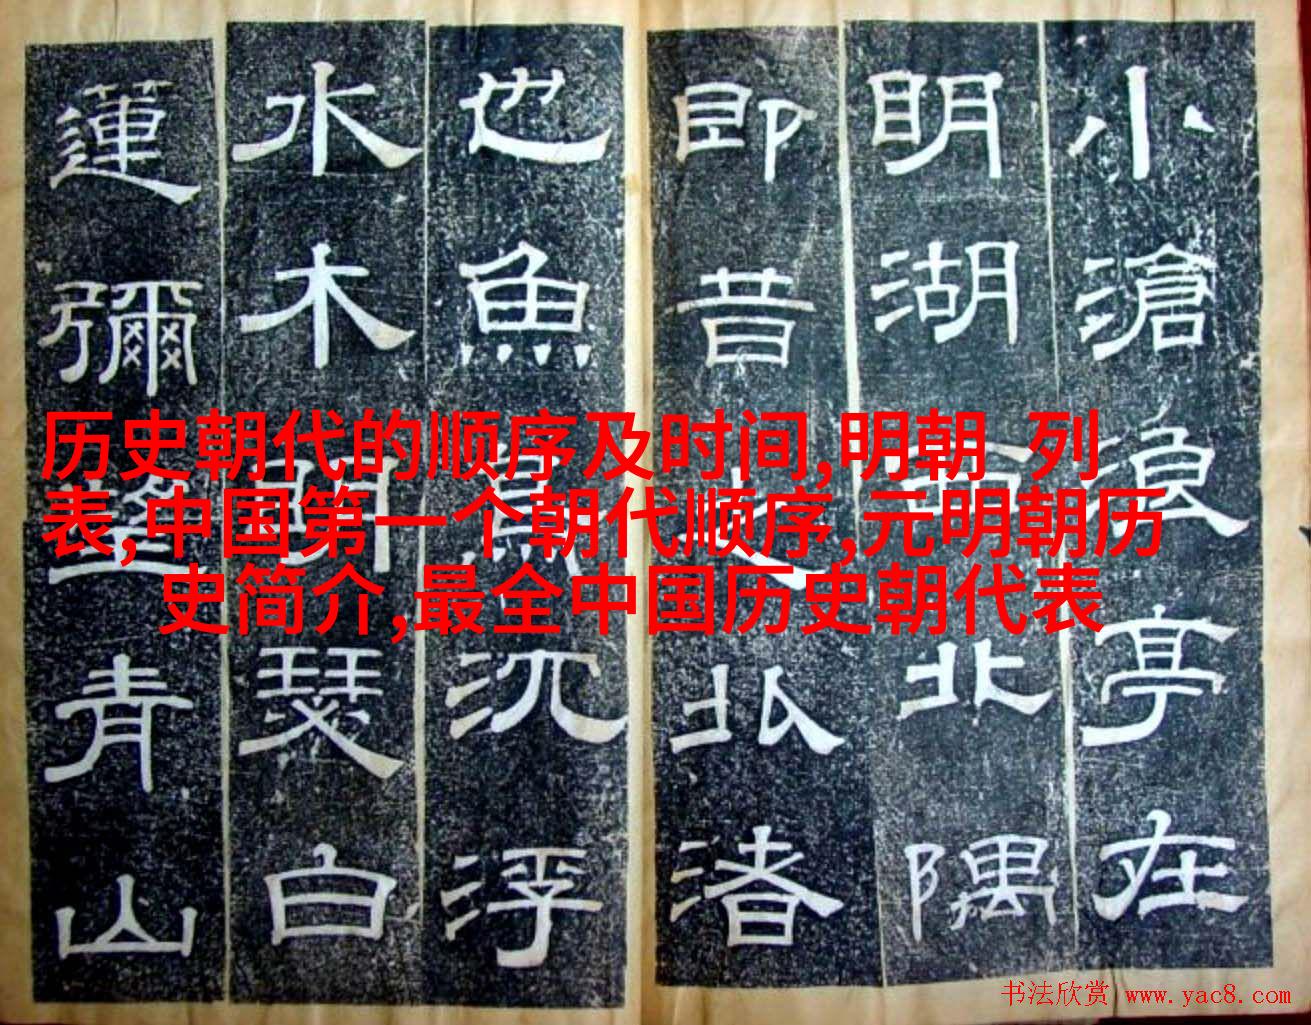 小滄浪亭在
明湖北隅
即昔之北渚
也魚鳥沉浮
水木明瑟白
蓮彌望青山
历史朝代的顺序及时间,明朝 列
表,中国第一个朝代顺序,元明朝历
史简介,最全中国历史朝代表
书法欣赏 www.yac8.com